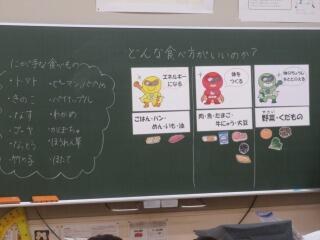 どんな食べ方がいいのか?
にが手な食いもの
・トマト
・きのこ
・なす
・ゴーヤ
・なっとう
・竹の子
・ピーマン
・パイナップル
・わかめ
・かぼちゃ
・ほうれん草
・ほたて
エネルギー
になる
ごはん・パン・
めん・いも・油
体を
つくる
肉・魚・たまご・
牛にゅう・大豆
体のちょうしを
ととのえる
野菜・くだもの